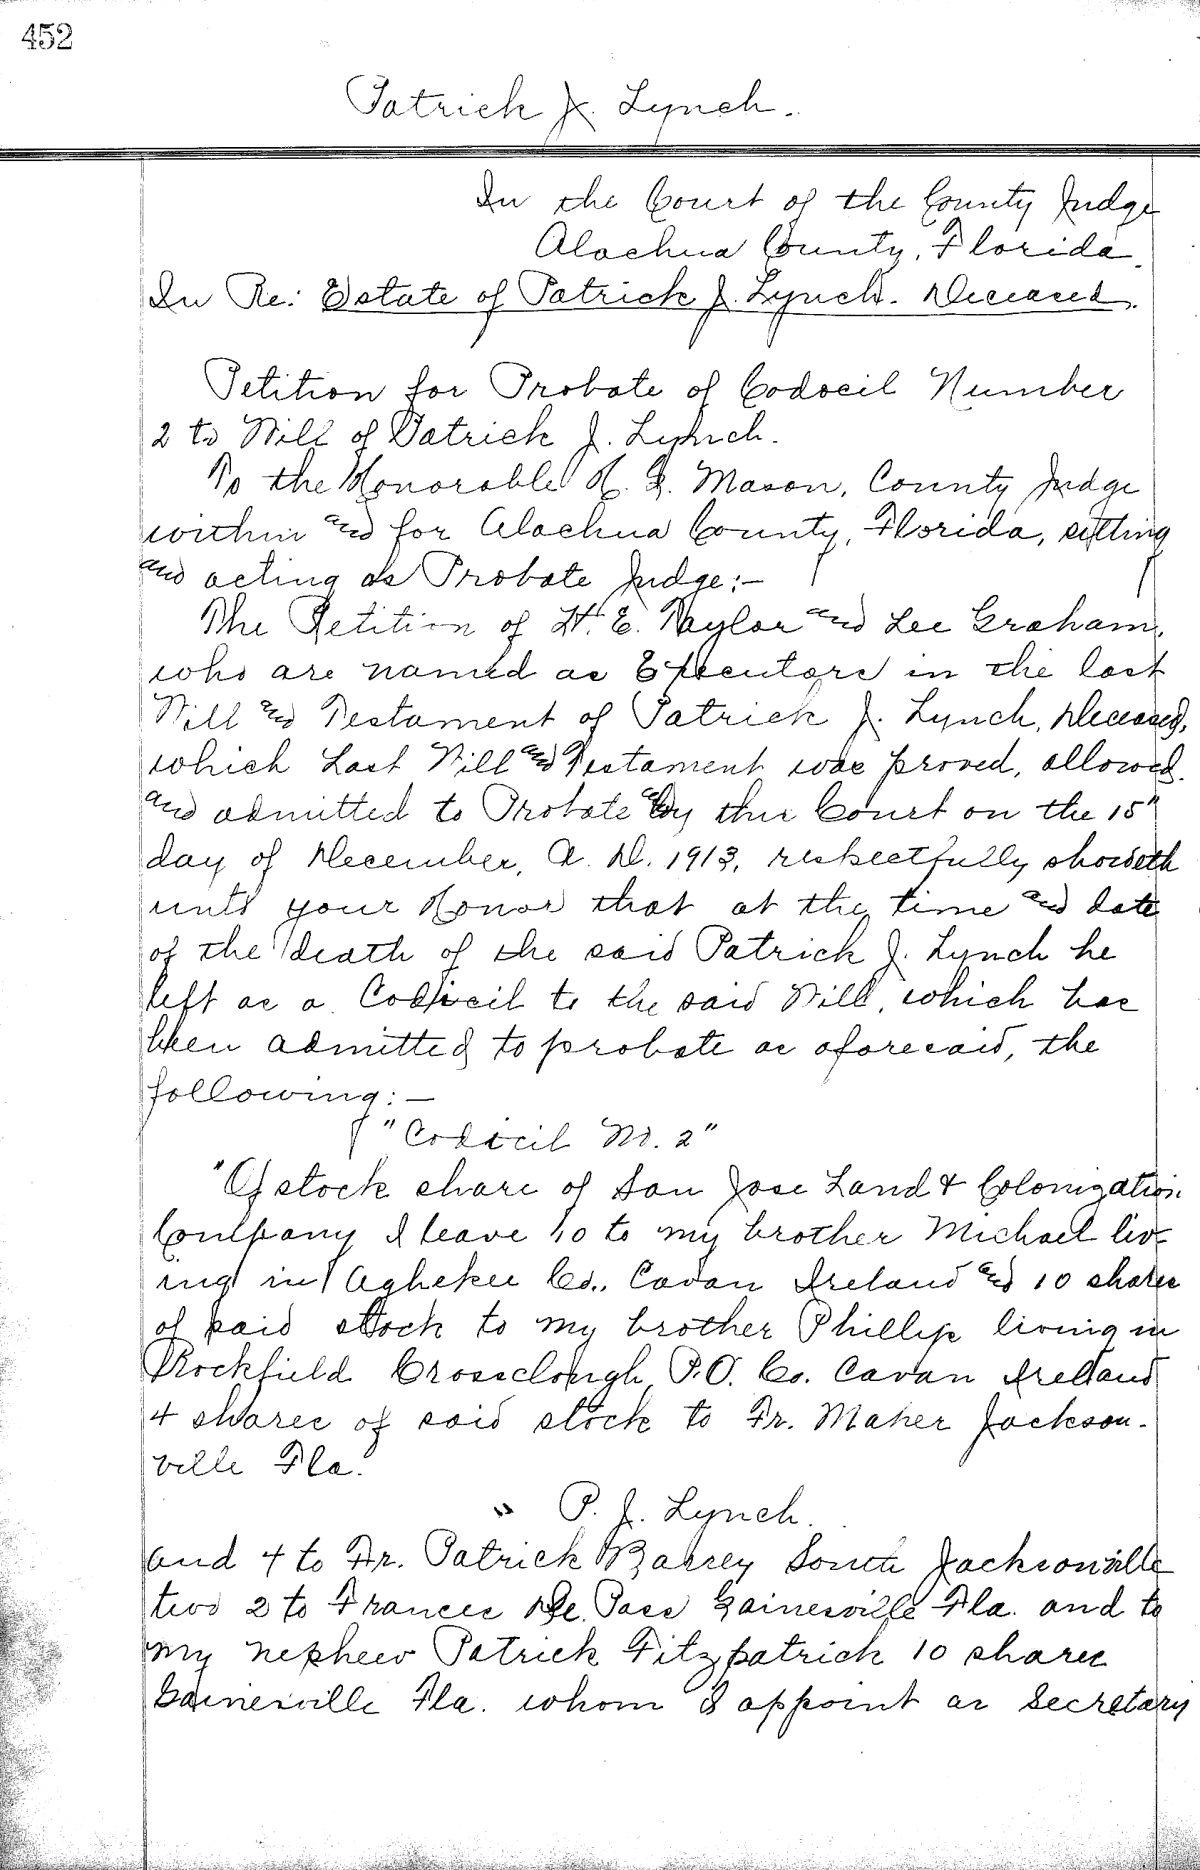 452
Patrick J. Lynch.
In the Court of the County Judge
Alachua County, Florida.
In Re: Estate of Patrick J. Lynch. Deceased.
Petition for Probate of Codocil Number
2 to Will of Patrick J. Lynch.
To the Honorable H. G. Mason, County Judge
within and for Alachua County, Florida, sitting
and acting as Probate Judge:—
The Petition of H. E. Taylor and Lee Graham,
who are named as Executors in the last
Will and Testament of Patrick J. Lynch, Deceased,
which Last Will and Testament was proved, allowed
and admitted to Probate by this Court on the 15"
day of December, A. D. 1913, respectfully showeth
unto your Honor that at the time and date
of the death of the said Patrick J. Lynch he
left as a Codicil to the said Will, which has
been admitted to probate as aforesaid, the
following:—
"Codicil No. 2"
"Of stock share of San Jose Land & Colonization
Company I leave 10 to my brother Michael liv-
ing in Aghekee Co., Cavan Ireland and 10 shares
of said stock to my brother Phillip living in
Rockfield Crossclough P.O. Co. Cavan Ireland
4 shares of said stock to Fr. Maher Jackson-
ville Fla.
" P. J. Lynch.
and 4 to Fr. Patrick Barrey South Jacksonville
two 2 to Frances De Pass Gainesville Fla. and to
my nephew Patrick Fitzpatrick 10 shares
Gainesville Fla. whom I appoint as Secretary